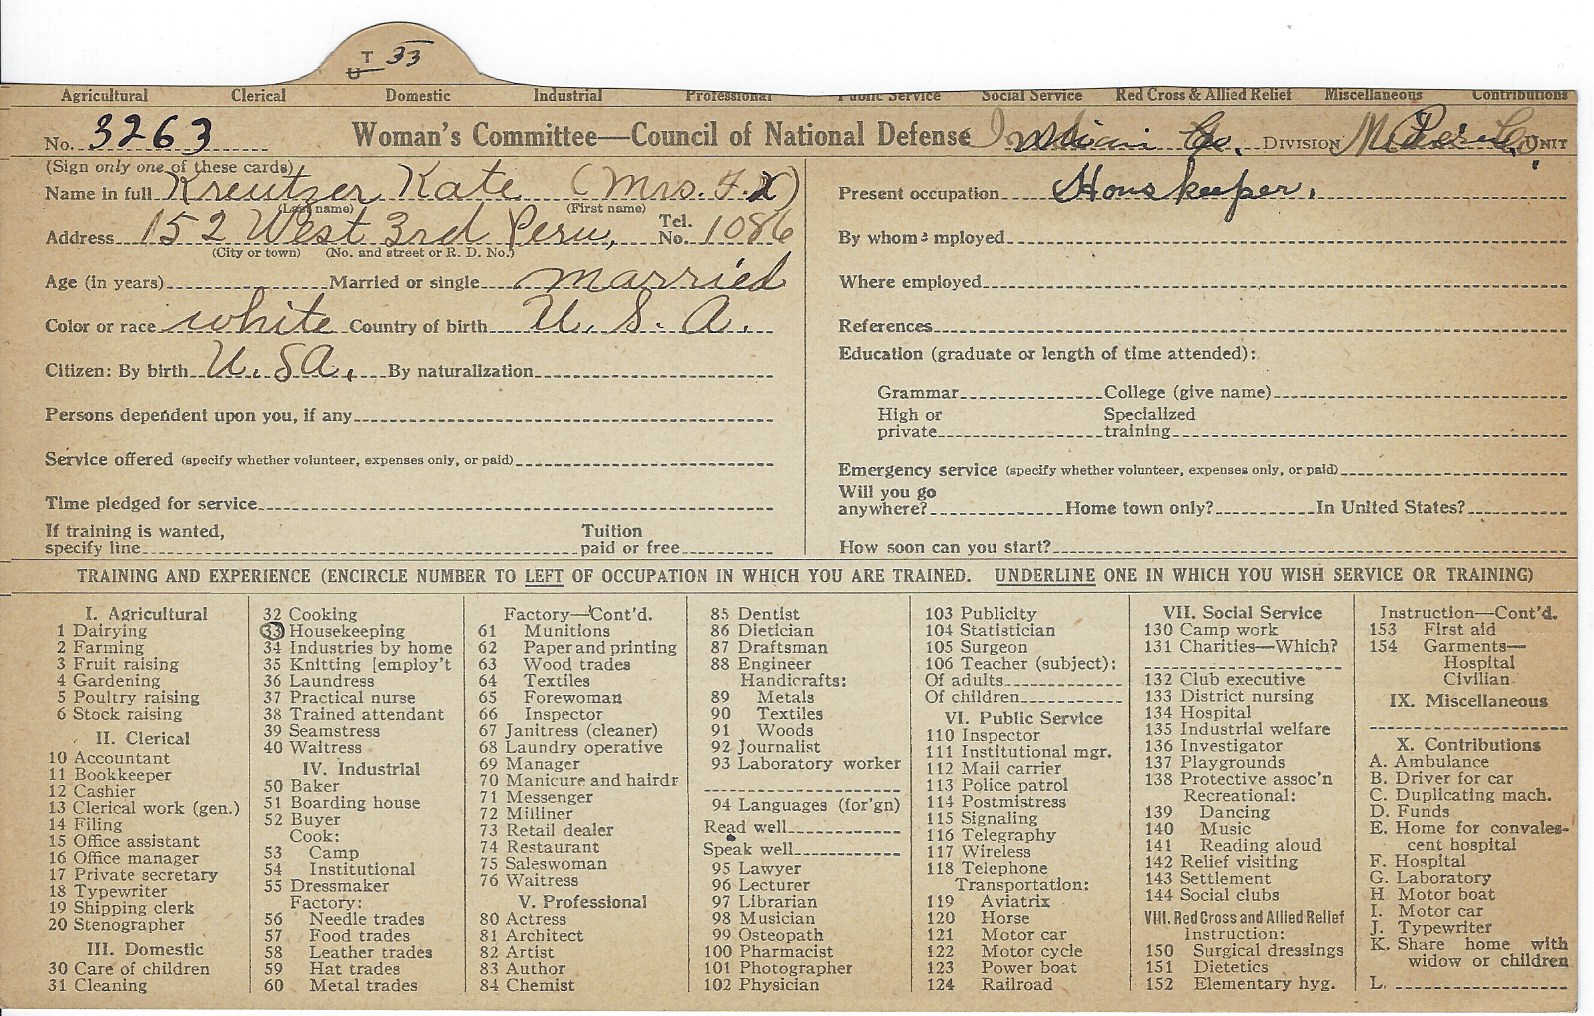 T 33
U
Agricultural Clerical Domestic Industrial Professional Public Service Social Service Red Cross & Allied Relief Miscellaneous Contributions
No. 3263 Woman's Committee—Council of National Defense Miami Co. DIVISION Peru UNIT
(Sign only one of these cards)
Name in full Kreutzer Kate (Mrs. F. X)
(Last name) (First name)
Address 152 West 3rd Peru, Tel. No. 1086
(City or town) (No. and street or R. D. No.)
Age (in years) Married or single married
Color or race white Country of birth U. S. A.
Citizen: By birth U. S A. By naturalization
Persons dependent upon you, if any
Service offered (specify whether volunteer, expenses only, or paid)
Time pledged for service
If training is wanted, Tuition
specify line paid or free
Present occupation Houskeeper.
By whom emplo­yed
Where employed
References
Education (graduate or length of time attended):
Grammar College (give name)
High or Specialized
private training
Emergency service (specify whether volunteer, expenses only, or paid)
Will you go
anywhere? Home town only? In United States?
How soon can you start?
TRAINING AND EXPERIENCE (ENCIRCLE NUMBER TO LEFT OF OCCUPATION IN WHICH YOU ARE TRAINED. UNDERLINE ONE IN WHICH YOU WISH SERVICE OR TRAINING)
I. Agricultural
1 Dairying
2 Farming
3 Fruit raising
4 Gardening
5 Poultry raising
6 Stock raising
II. Clerical
10 Accountant
11 Bookkeeper
12 Cashier
13 Clerical work (gen.)
14 Filing
15 Office assistant
16 Office manager
17 Private secretary
18 Typewriter
19 Shipping clerk
20 Stenographer
III. Domestic
30 Care of children
31 Cleaning
32 Cooking
33 Housekeeping
34 Industries by home
35 Knitting [employ't
36 Laundress
37 Practical nurse
38 Trained attendant
39 Seamstress
40 Waitress
IV. Industrial
50 Baker
51 Boarding house
52 Buyer
Cook:
53 Camp
54 Institutional
55 Dressmaker
Factory:
56 Needle trades
57 Food trades
58 Leather trades
59 Hat trades
60 Metal trades
Factory—Cont'd.
61 Munitions
62 Paper and printing
63 Wood trades
64 Textiles
65 Forewoman
66 Inspector
67 Janitress (cleaner)
68 Laundry operative
69 Manager
70 Manicure and hairdr
71 Messenger
72 Milliner
73 Retail dealer
74 Restaurant
75 Saleswoman
76 Waitress
V. Professional
80 Actress
81 Architect
82 Artist
83 Author
84 Chemist
85 Dentist
86 Dietician
87 Draftsman
88 Engineer
Handicrafts:
89 Metals
90 Textiles
91 Woods
92 Journalist
93 Laboratory worker
94 Languages (for'gn)
Read well
Speak well
95 Lawyer
96 Lecturer
97 Librarian
98 Musician
99 Osteopath
100 Pharmacist
101 Photographer
102 Physician
103 Publicity
104 Statistician
105 Surgeon
106 Teacher (subject):
Of adults
Of children
VI. Public Service
110 Inspector
111 Institutional mgr.
112 Mail carrier
113 Police patrol
114 Postmistress
115 Signaling
116 Telegraphy
117 Wireless
118 Telephone
Transportation:
119 Aviatrix
120 Horse
121 Motor car
122 Motor cycle
123 Power boat
124 Railroad
VII. Social Service
130 Camp work
131 Charities—Which?
132 Club executive
133 District nursing
134 Hospital
135 Industrial welfare
136 Investigator
137 Playgrounds
138 Protective assoc'n
Recreational:
139 Dancing
140 Music
141 Reading aloud
142 Relief visiting
143 Settlement
144 Social clubs
VIII. Red Cross and Allied Relief
Instruction:
150 Surgical dressings
151 Dietetics
152 Elementary hyg.
Instruction—Cont'd.
153 First aid
154 Garments—
Hospital
Civilian
IX. Miscellaneous
X. Contributions
A. Ambulance
B. Driver for car
C. Duplicating mach.
D. Funds
E. Home for convales-
cent hospital
F. Hospital
G. Laboratory
H. Motor boat
I. Motor car
J. Typewriter
K. Share home with
widow or children
L.